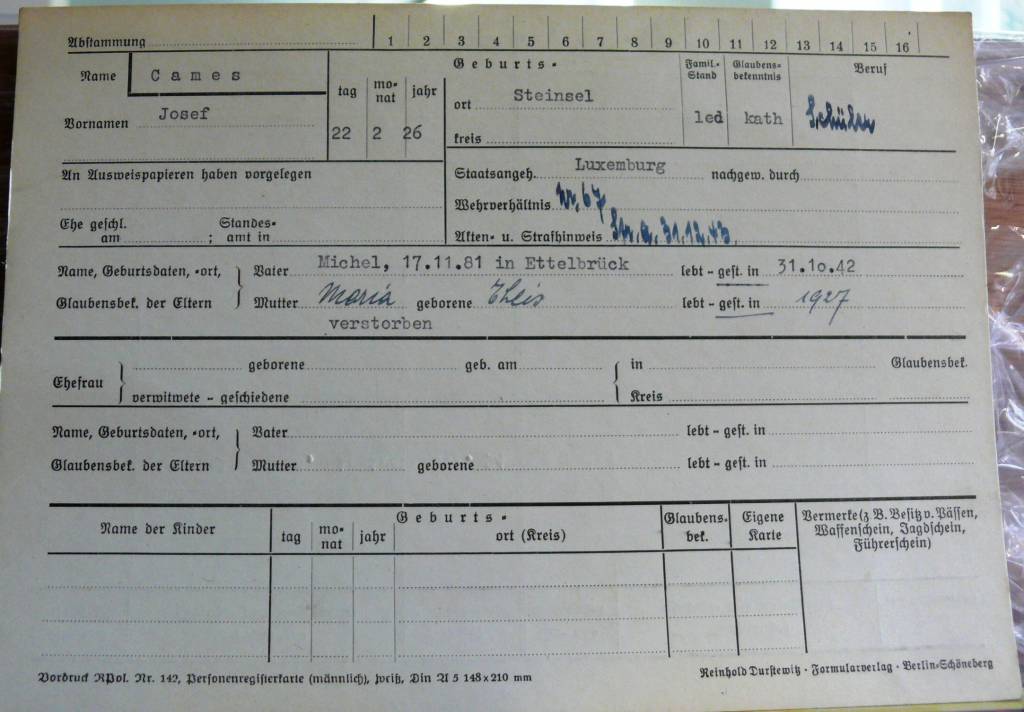 Abstammung 1 2 3 4 5 6 7 8 9 10 11 12 13 14 15 16
Name Cames
Geburts-
Famil.-Stand Glaubens-bekenntnis Beruf
tag mo-nat jahr
ort Steinsel
Vornamen Josef
22 2 26
led kath Schüler
kreis
An Ausweispapieren haben vorgelegen
Staatsangeh. Luxemburg nachgew. durch
Wehrverhältnis
Ehe geschl. am ; Standes-amt in
Akten- u. Strafhinweis 31.12.43.
Name, Geburtsdaten, -ort, Vater Michel, 17.11.81 in Ettelbrück lebt - gest. in 31.10.42
Glaubensbek. der Eltern Mutter Maria geborene Theis lebt - gest. in 1927
verstorben
Ehefrau geborene geb. am in Glaubensbek.
verwitwete - geschiedene Kreis
Name, Geburtsdaten, -ort, Vater lebt - gest. in
Glaubensbek. der Eltern Mutter geborene lebt - gest. in
Name der Kinder
Geburts-
tag mo-nat jahr ort (Kreis)
Glaubens-bek. Eigene Karte
Vermerke (z. B. Besitz v. Pässen,
Waffenschein, Jagdschein,
Führerschein)
Vordruck RPol. Nr. 142, Personenregisterkarte (männlich), weiß, Din A 5 148x210 mm
Reinhold Durstewitz · Formularverlag · Berlin-Schöneberg